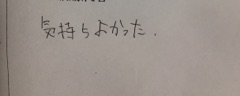 気持ちよかった.